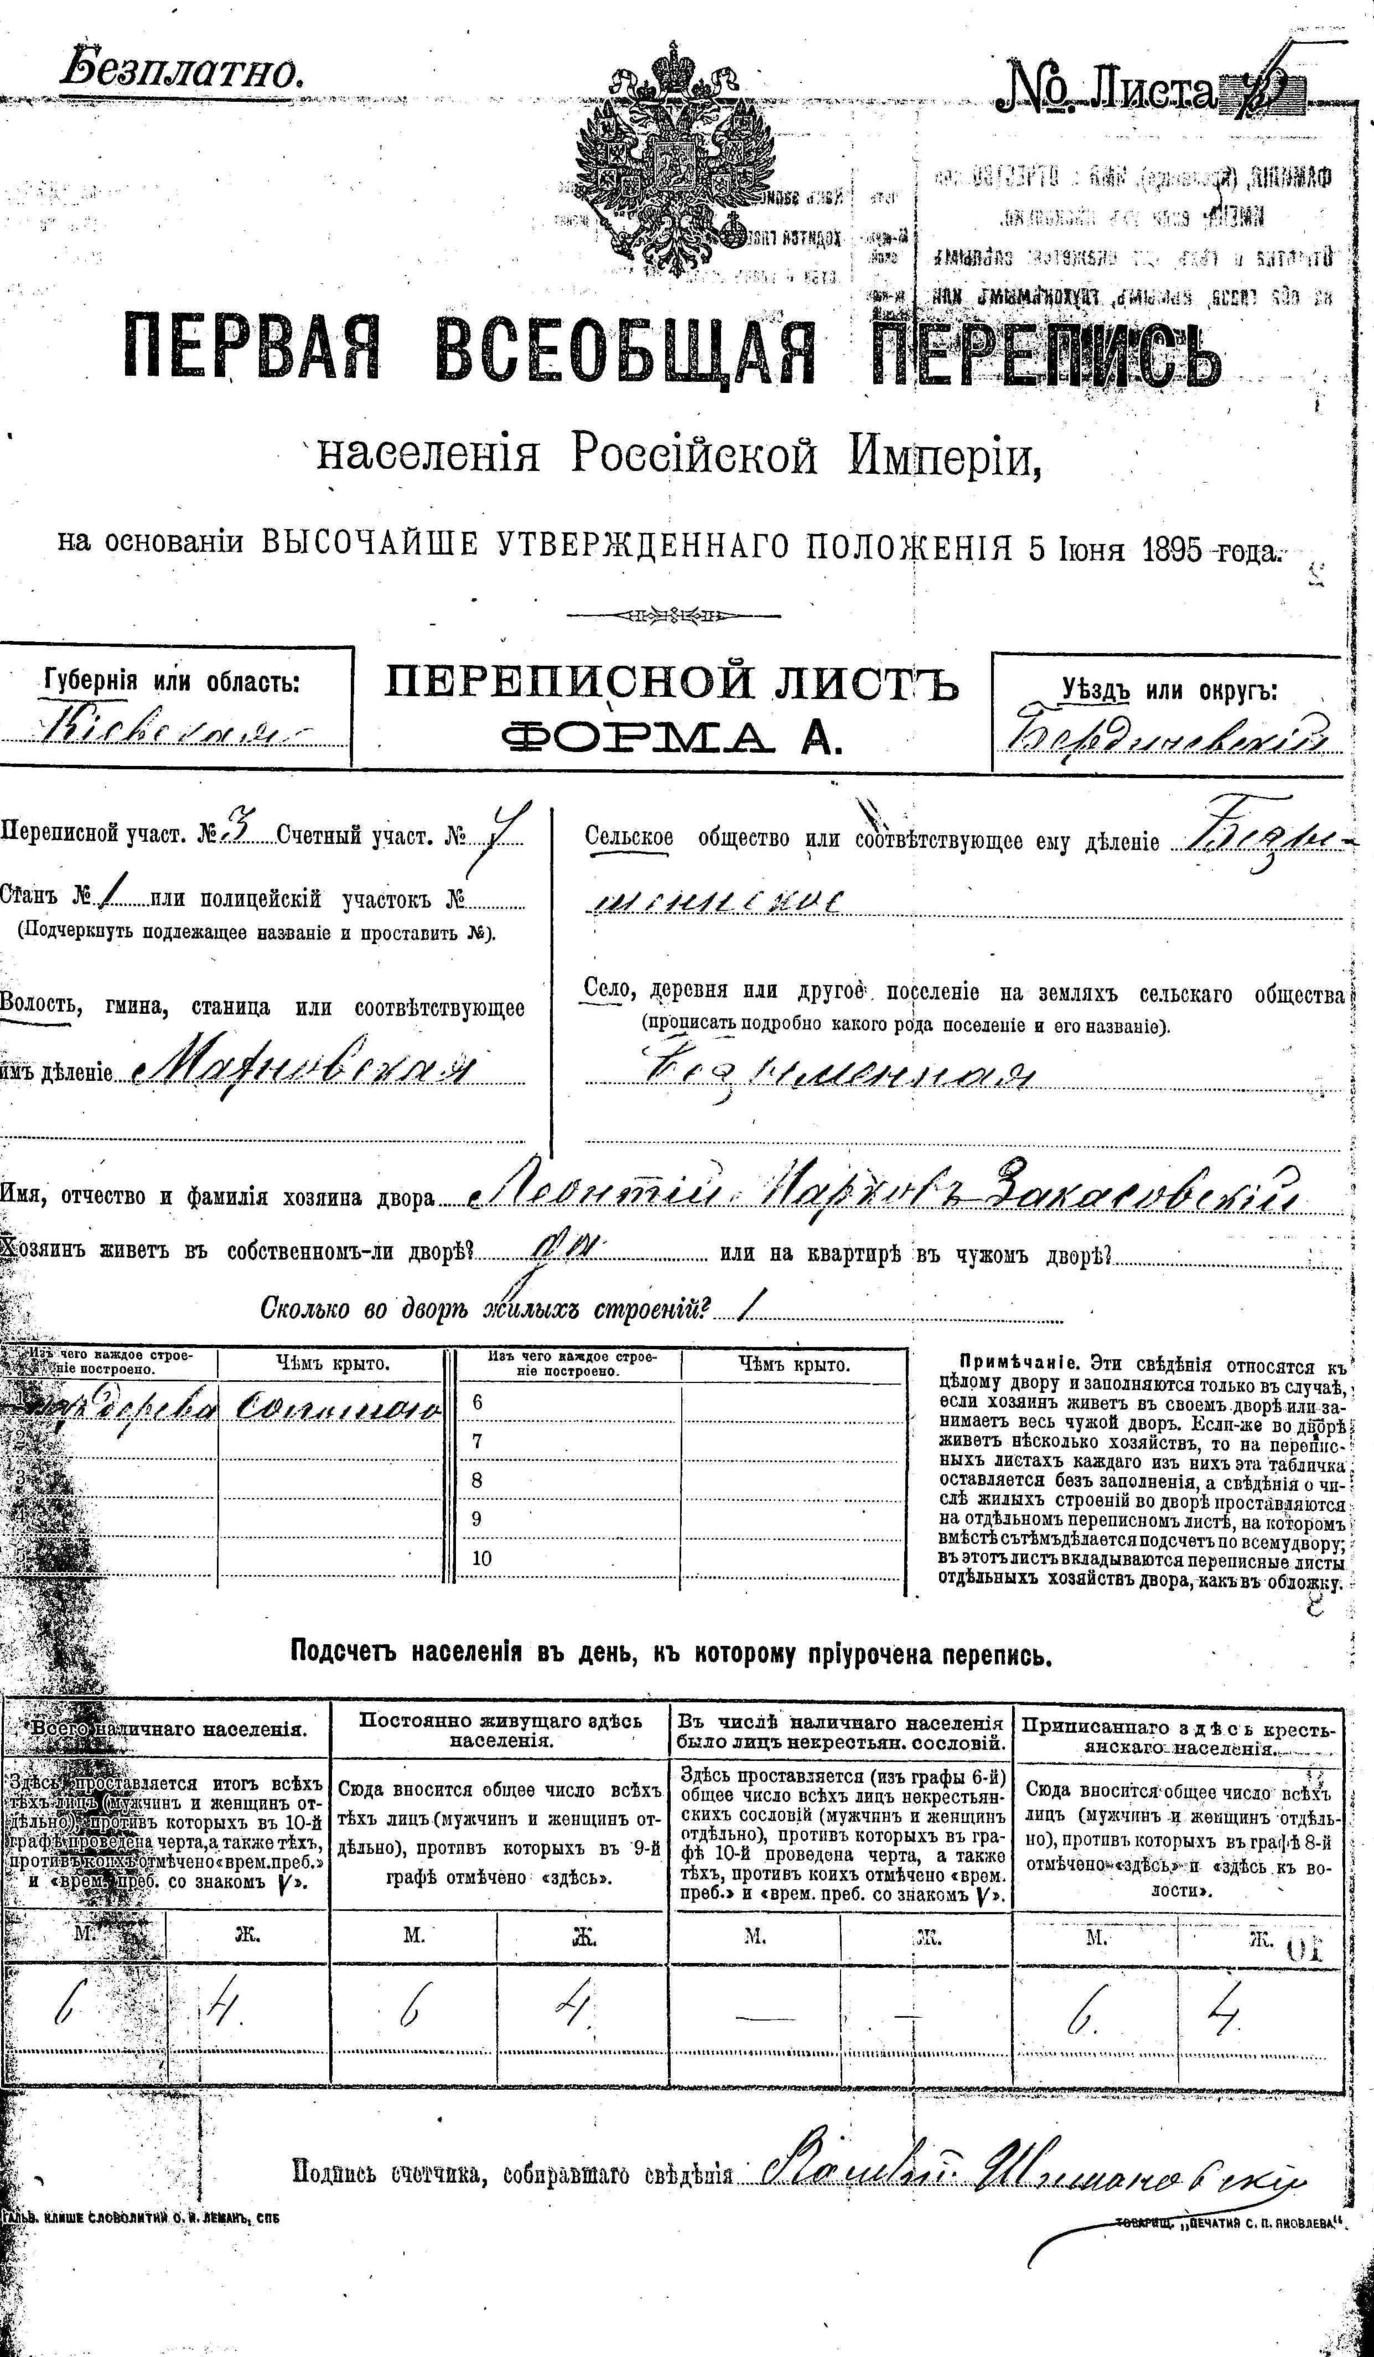 Безплатно.
№. Листа
ПЕРВАЯ ВСЕОБЩАЯ ПЕРЕПИСЬ
населенія Россійской Имперіи,
на основаніи ВЫСОЧАЙШЕ УТВЕРЖДЕННАГО ПОЛОЖЕНІЯ 5 Іюня 1895 года.
Губернія или область:
Кіевская
ПЕРЕПИСНОЙ ЛИСТЪ
ФОРМА А.
Уѣздъ или округъ:
Бердичевскій
Переписной участ. № 3 Счетный участ. № 7
Станъ № 1 или полицейскій участокъ №
(Подчеркнуть подлежащее названіе и проставить №).
Волость, гмина, станица или соотвѣтствующее
имъ дѣленіе Махновская
Сельское общество или соотвѣтствующее ему дѣленіе Безы-
менское
Село, деревня или другое поселеніе на земляхъ сельскаго общества
(прописать подробно какого рода поселеніе и его названіе).
Безыменная
Имя, отчество и фамилія хозяина двора Леонтій Марковъ Закасовскій
Хозяинъ живетъ въ собственномъ-ли дворѣ? да или на квартирѣ въ чужомъ дворѣ?
Сколько во дворѣ жилыхъ строеній? 1
Изъ чего каждое строе-
ніе построено.
Чѣмъ крыто.
Изъ чего каждое строе-
ніе построено.
Чѣмъ крыто.
изъ дерева соломою 6
2 7
3 8
4 9
5 10
Примѣчаніе. Эти свѣдѣнія относятся къ
цѣлому двору и заполняются только въ случаѣ,
если хозяинъ живетъ въ своемъ дворѣ или за-
нимаетъ весь чужой дворъ. Если-же во дворѣ
живетъ нѣсколько хозяйствъ, то на перепис-
ныхъ листахъ каждаго изъ нихъ эта табличка
оставляется безъ заполненія, а свѣдѣнія о чи-
слѣ жилыхъ строеній во дворѣ проставляются
на отдѣльномъ переписномъ листѣ, на которомъ
вмѣстѣ съ тѣмъ дѣлается подсчетъ по всему двору;
въ этотъ листъ вкладываются переписные листы
отдѣльныхъ хозяйствъ двора, какъ въ обложку.
Подсчетъ населенія въ день, къ которому пріурочена перепись.
Всего наличнаго населенія.
Здѣсь проставляется итогъ всѣхъ
тѣхъ лицъ (мужчинъ и женщинъ от-
дѣльно), противъ которыхъ въ 10-й
графѣ проведена черта, а также тѣхъ,
противъ коихъ отмѣчено «врем. преб.»
и «врем. преб. со знакомъ V».
М. Ж.
6 4.
Постоянно живущаго здѣсь
населенія.
Сюда вносится общее число всѣхъ
тѣхъ лицъ (мужчинъ и женщинъ от-
дѣльно), противъ которыхъ въ 9-й
графѣ отмѣчено «здѣсь».
М. Ж.
6 4.
Въ числѣ наличнаго населенія
было лицъ некрестьян. сословій.
Здѣсь проставляется (изъ графы 6-й)
общее число всѣхъ лицъ некрестьян-
скихъ сословій (мужчинъ и женщинъ
отдѣльно), противъ которыхъ въ гра-
фѣ 10-й проведена черта, а также
тѣхъ, противъ коихъ отмѣчено «врем.
преб.» и «врем. преб. со знакомъ V».
М. Ж.
— —
Приписаннаго здѣсь кресть-
янскаго населенія.
Сюда вносится общее число всѣхъ
лицъ (мужчинъ и женщинъ отдѣль-
но), противъ которыхъ въ графѣ 8-й
отмѣчено «здѣсь» и «здѣсь къ во-
лости».
М. Ж.
6. 4.
Подпись счетчика, собиравшаго свѣдѣнія
ГАЛЬВ. КЛИШЕ СЛОВОЛИТНИ О. И. ЛЕМАНЪ, СПБ
ТОВАРИЩ. „ПЕЧАТНЯ С. П. ЯКОВЛЕВА“.